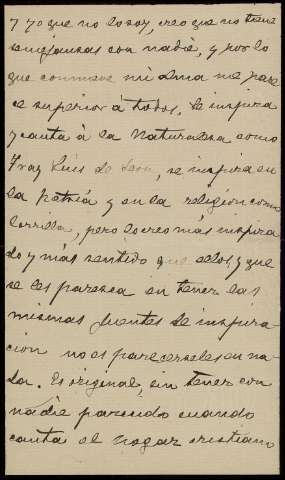 y yo que no lo soy, creo que no tiene
semejanzas con nadie, y por lo
que conmueve mi alma me pare
ce superior á todos. Se inspira
y canta á la Naturaleza como
Fray Luis de León, se inspira en
la patria y en la religión como
Zorrilla, pero lo creo más inspira
do y más sentido que ellos y que
se les parezca en tener las
mismas fuentes de inspira-
ción no es parecerseles en na-
da. Es original, sin tener con
nadie parecido cuando
canta el hogar cristiano